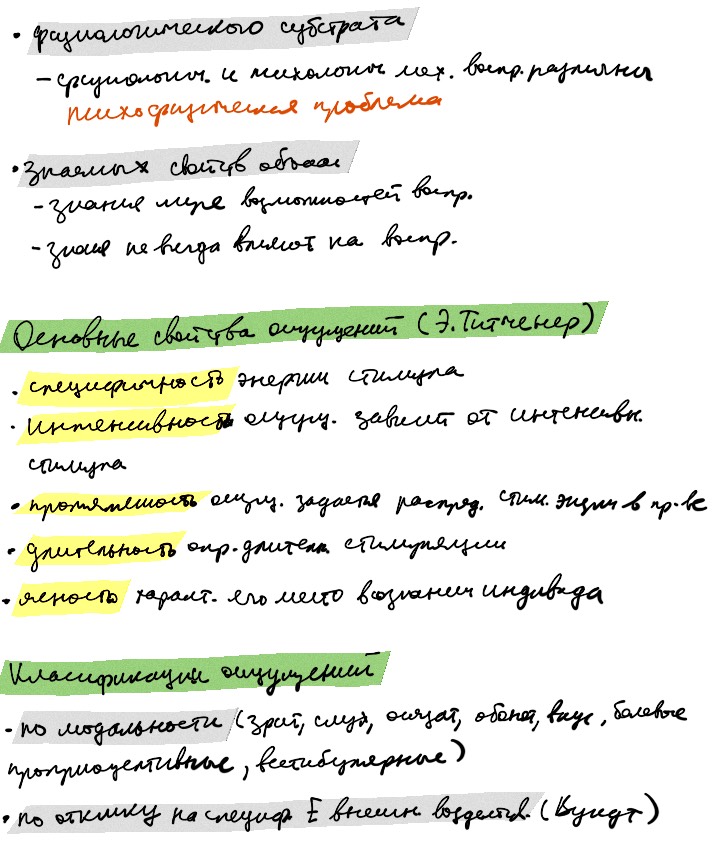 • физиологического субстрата
– физиологич. и психологич мех. воспр. различны
психофизическая проблема
• Знаемых свойств объекта
– знания шире возможностей воспр.
– знания не всегда влияют на воспр.
Основные свойства ощущений (Э. Титченер)
• специфичность энергии стимула
• интенсивность ощущ. зависит от интенсивн.
стимула
• протяженность ощущ. задается распред. стим. энергии в пр-ве
• длительность опр. длительн. стимуляции
• ясность характ. его место в сознании индивида
Классификации ощущений
- по модальности (зрит, слух, осязат, обонят, вкус, болевые
проприоцептивные, вестибулярные)
• по отклику на специф. E внешн. воздейств. (Вундт)